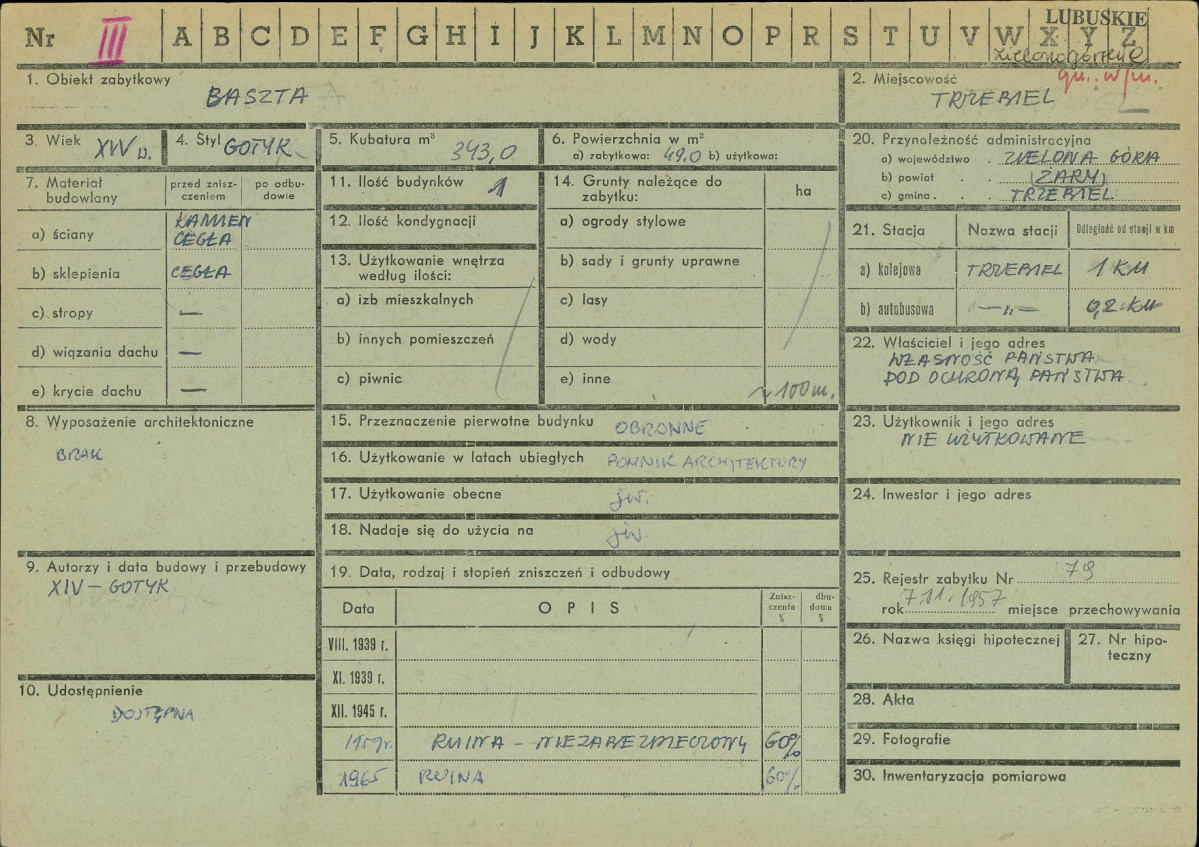 Nr III A B C D E F G H I J K L M N O P R S T U V W X Y Z
LUBUSKIE
gm. w/m.
1. Obiekt zabytkowy
BASZTA
2. Miejscowość
TRZEBIEL
3. Wiek XIV w.
4. Styl GOTYK
5. Kubatura m³ 343,0
6. Powierzchnia w m²
a) zabytkowa: 49,0 b) użytkowa:
20. Przynależność administracyjna
a) województwo . ZIELONA GÓRA
b) powiat . . (ŻARY)
c) gmina . . . TRZEBIEL
7. Materiał budowlany
przed znisz-
czeniem
po odbu-
dowie
a) ściany KAMIEŃ
CEGŁA
b) sklepienia CEGŁA
c) stropy —
d) wiązania dachu —
e) krycie dachu —
11. Ilość budynków 1
12. Ilość kondygnacji
13. Użytkowanie wnętrza
według ilości:
a) izb mieszkalnych
b) innych pomieszczeń
c) piwnic
14. Grunty należące do
zabytku:
ha
a) ogrody stylowe
b) sady i grunty uprawne
c) lasy
d) wody
e) inne
~ 100 m.
21. Stacja Nazwa stacji Odległość od stacji w km
a) kolejowa TRZEBIEL 1 KM
b) autobusowa —„— 0,2 KM
22. Właściciel i jego adres
WŁASNOŚĆ PAŃSTWA
POD OCHRONĄ PAŃSTWA
8. Wyposażenie architektoniczne
BRAK
15. Przeznaczenie pierwotne budynku OBRONNE
16. Użytkowanie w latach ubiegłych POMNIK ARCHITEKTURY
17. Użytkowanie obecne jw.
18. Nadaje się do użycia na jw.
23. Użytkownik i jego adres
NIE UŻYTKOWANE
24. Inwestor i jego adres
9. Autorzy i data budowy i przebudowy
XIV – GOTYK
10. Udostępnienie
DOSTĘPNA
19. Data, rodzaj i stopień zniszczeń i odbudowy
Data OPIS Znisz-
czenia
%
dbu-
dowa
%
VIII. 1939 r.
XI. 1939 r.
XII. 1945 r.
1959r. RUINA – NIEZABEZPIECZONY 60%
1965 RUINA 60%
25. Rejestr zabytku Nr 79
rok 7.11.1957 miejsce przechowywania
26. Nazwa księgi hipotecznej
27. Nr hipo-
teczny
28. Akta
29. Fotografie
30. Inwentaryzacja pomiarowa